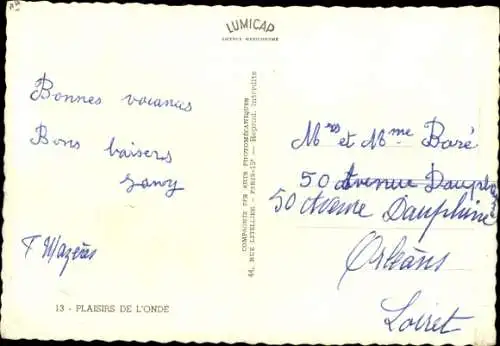 LUMICAP
LICENCE
Bonnes vacances
Bons baisers
F Mazères
13 - PLAISIRS DE L'ONDE
COMPAGNIE DES ARTS PHOTOMÉCANIQUES
44, RUE LETELLIER - PARIS-15e - Reprod. interdite
Mrs et Mme Boré
50 Avenue Dauph
50 Avenue Dauphine
Orléans
Loiret